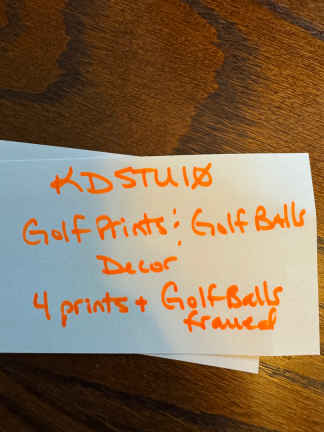 KDSTUIØ
Golf Prints: Golf Balls
Decor
4 prints + Golf Balls
framed